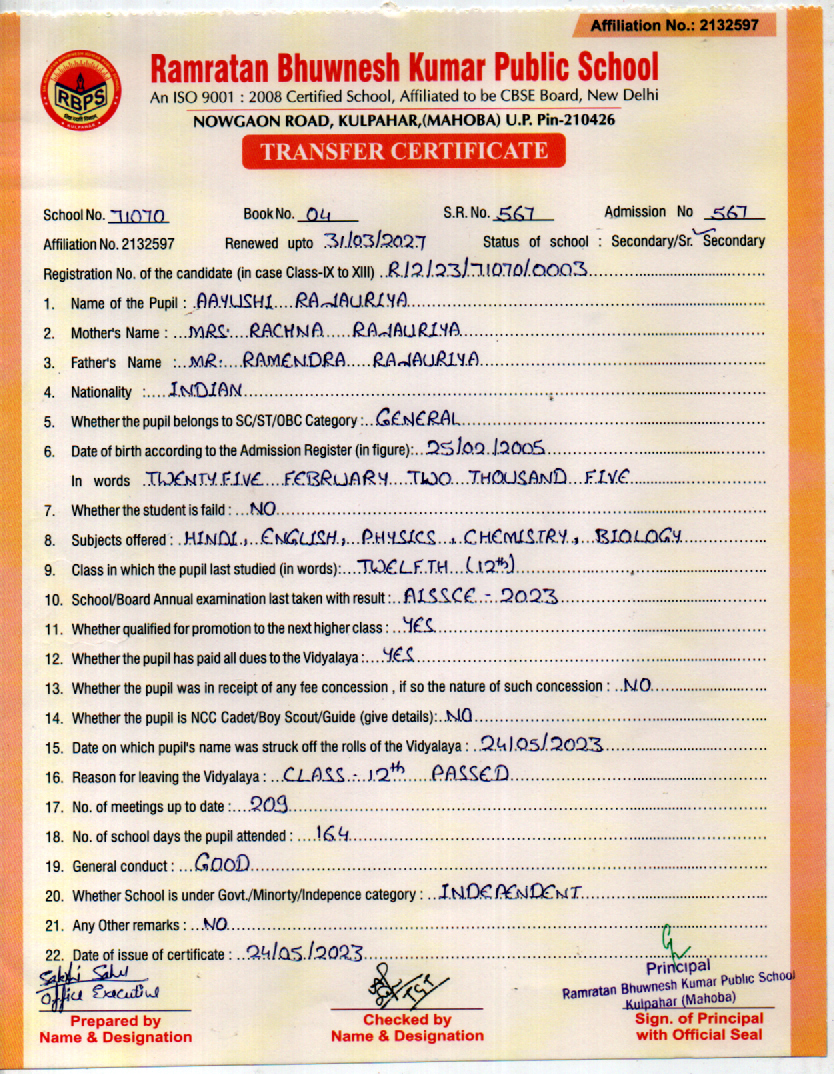 Affiliation No.: 2132597
Ramratan Bhuwnesh Kumar Public School
An ISO 9001 : 2008 Certified School, Affiliated to be CBSE Board, New Delhi
NOWGAON ROAD, KULPAHAR,(MAHOBA) U.P. Pin-210426
RBPS
KULPAHAR
TRANSFER CERTIFICATE
School No. 71070 Book No. 04 S.R. No. 567 Admission No 567
Affiliation No. 2132597 Renewed upto 31/03/2027 Status of school : Secondary/Sr. Secondary
Registration No. of the candidate (in case Class-IX to XIII) R/2/23/71070/0003
1. Name of the Pupil : AAYUSHI RAJAURIYA
2. Mother's Name : MRS. RACHNA RAJAURIYA
3. Father's Name : MR. RAMENDRA RAJAURIYA
4. Nationality : INDIAN
5. Whether the pupil belongs to SC/ST/OBC Category : GENERAL
6. Date of birth according to the Admission Register (in figure): 25/02/2005
In words TWENTY FIVE FEBRUARY TWO THOUSAND FIVE
7. Whether the student is faild : NO
8. Subjects offered : HINDI, ENGLISH, PHYSICS, CHEMISTRY, BIOLOGY
9. Class in which the pupil last studied (in words): TWELFTH (12th)
10. School/Board Annual examination last taken with result : AISSCE - 2023
11. Whether qualified for promotion to the next higher class : YES
12. Whether the pupil has paid all dues to the Vidyalaya : YES
13. Whether the pupil was in receipt of any fee concession , if so the nature of such concession : NO
14. Whether the pupil is NCC Cadet/Boy Scout/Guide (give details): NO
15. Date on which pupil's name was struck off the rolls of the Vidyalaya : 24/05/2023
16. Reason for leaving the Vidyalaya : CLASS - 12th PASSED
17. No. of meetings up to date : 209
18. No. of school days the pupil attended : 164
19. General conduct : GOOD
20. Whether School is under Govt./Minorty/Indepence category : INDEPENDENT
21. Any Other remarks : NO
22. Date of issue of certificate : 24/05/2023
Sakhi Sahu
Office Executive
TGT
Principal
Ramratan Bhuwnesh Kumar Public School
Kulpahar (Mahoba)
Prepared by Checked by Sign. of Principal
Name & Designation Name & Designation with Official Seal